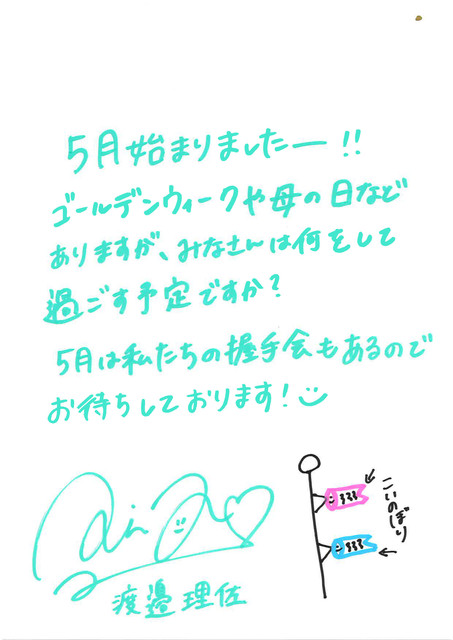 5月始まりましたー!!
ゴールデンウィークや母の日など
ありますが、みなさんは何をして
過ごす予定ですか?
5月は私たちの握手会もあるので
お待ちしております!
こいのぼり
渡邉理佐